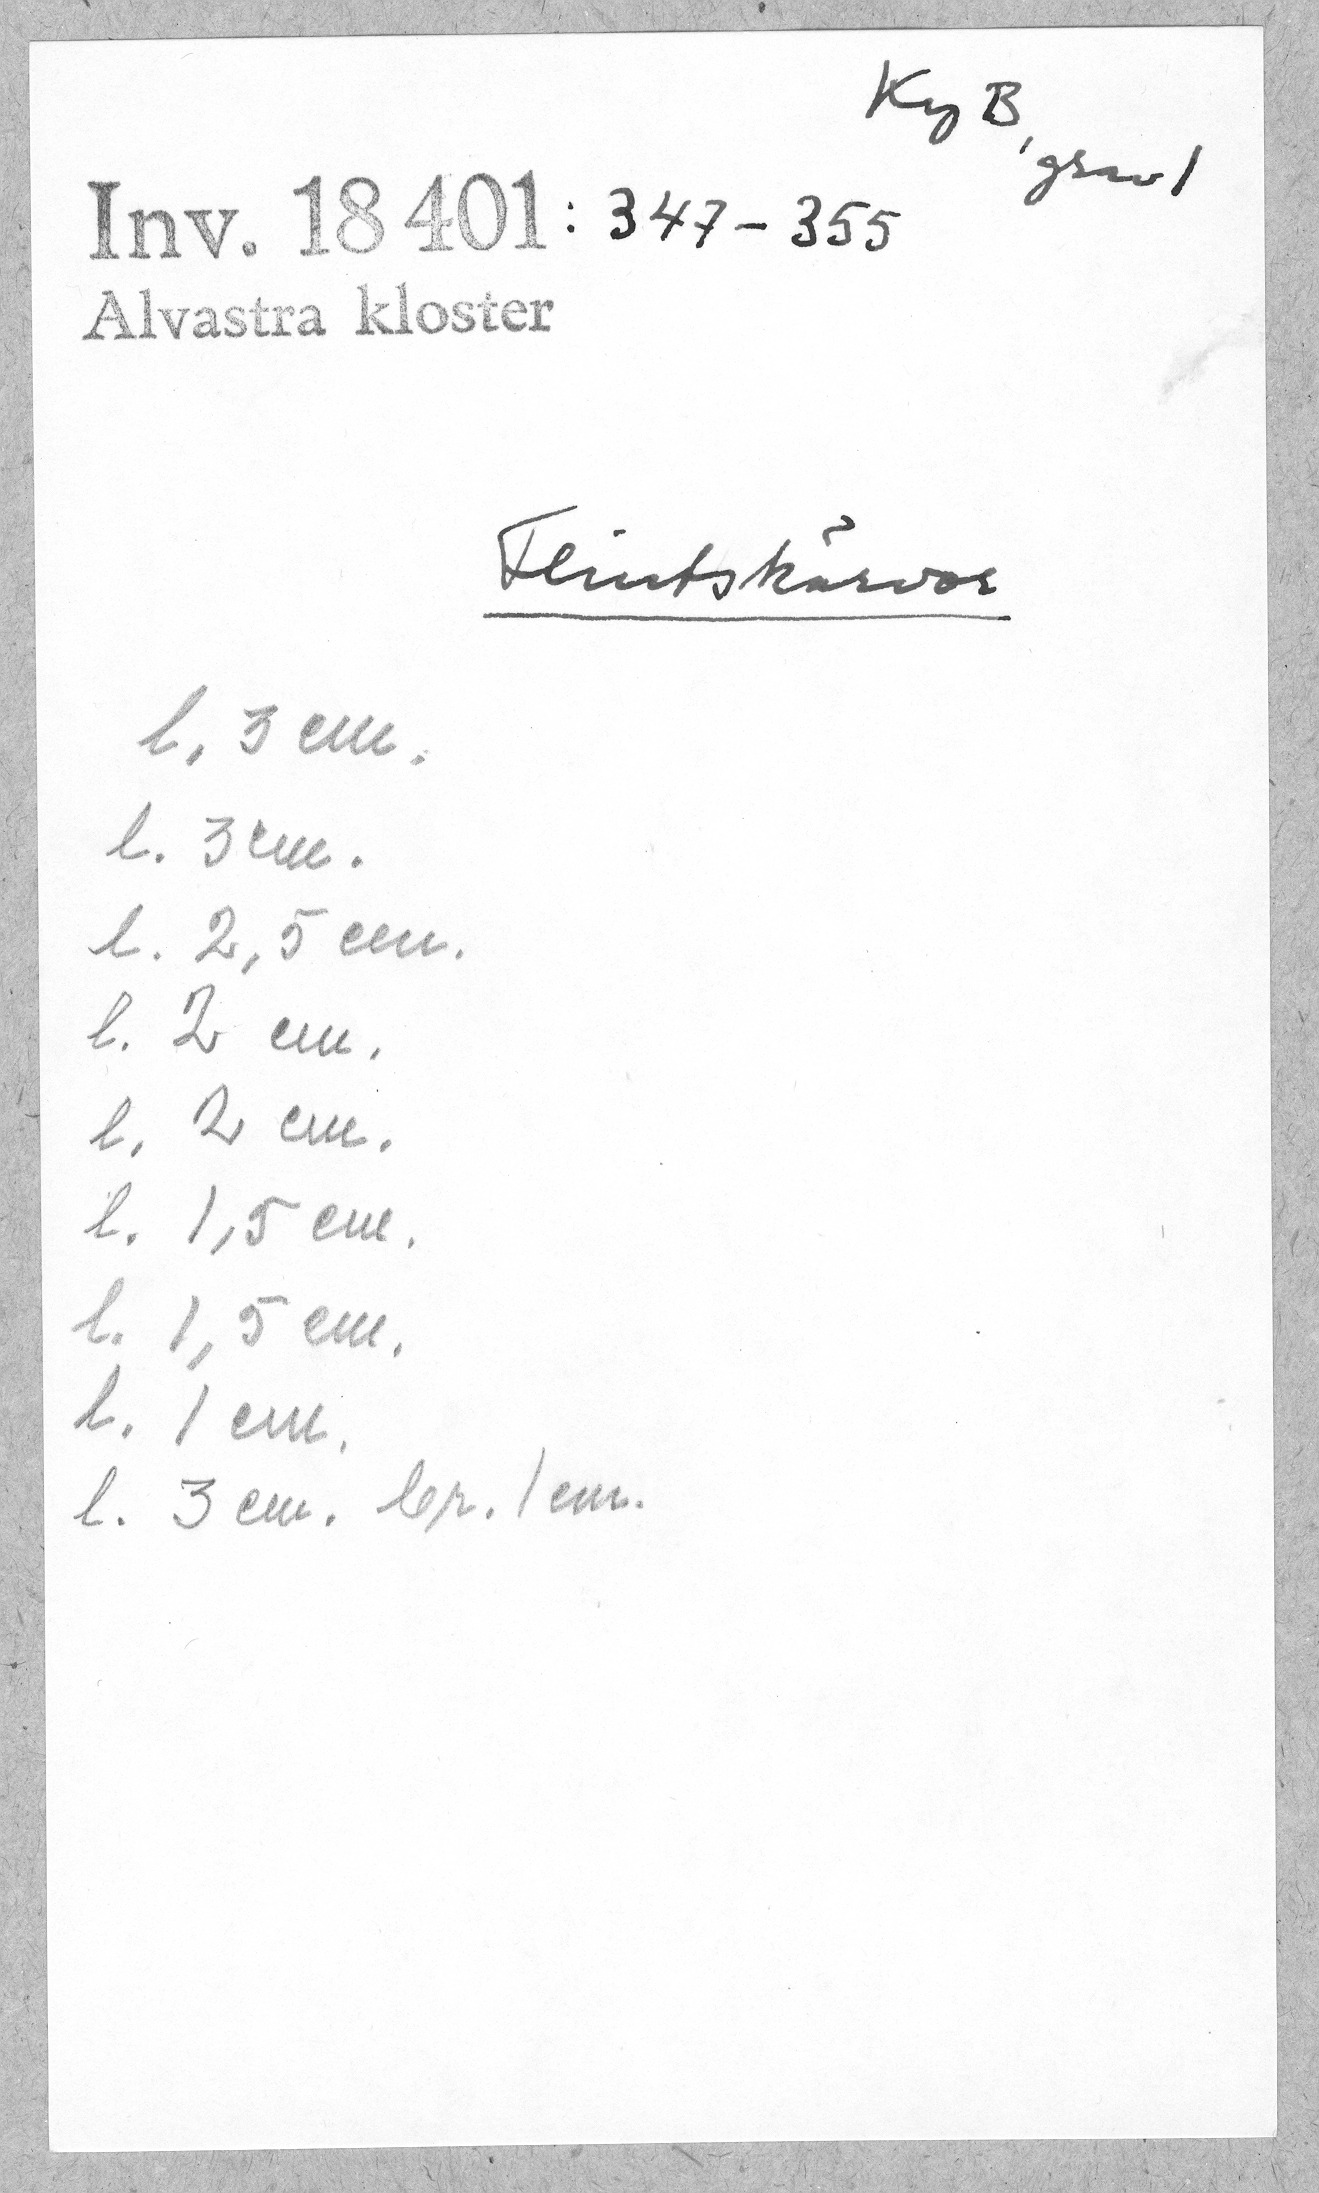 Ky B, grav 1
Inv. 18 401: 347-355
Alvastra kloster
Flintskärvor
l. 3 cm.
l. 3 cm.
l. 2,5 cm.
l. 2 cm.
l. 2 cm.
l. 1,5 cm.
l. 1,5 cm.
l. 1 cm.
l. 3 cm. br. 1 cm.